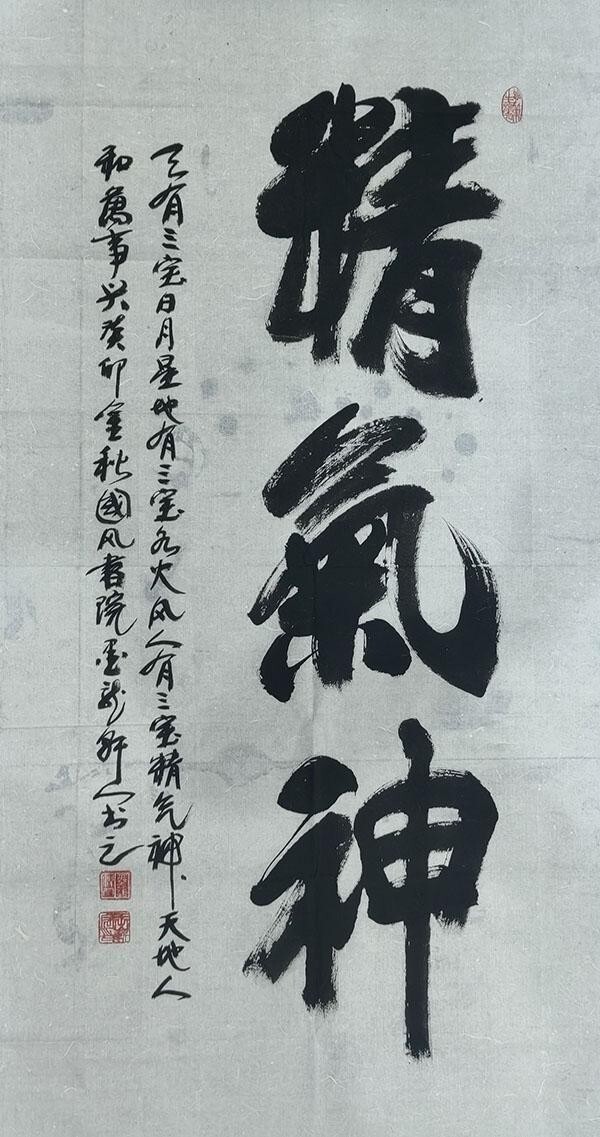 精氣神
天有三宝日月星地有三宝水火风人有三宝精气神天地人
和萬事兴癸卯金秋國风書院墨龍轩人书之